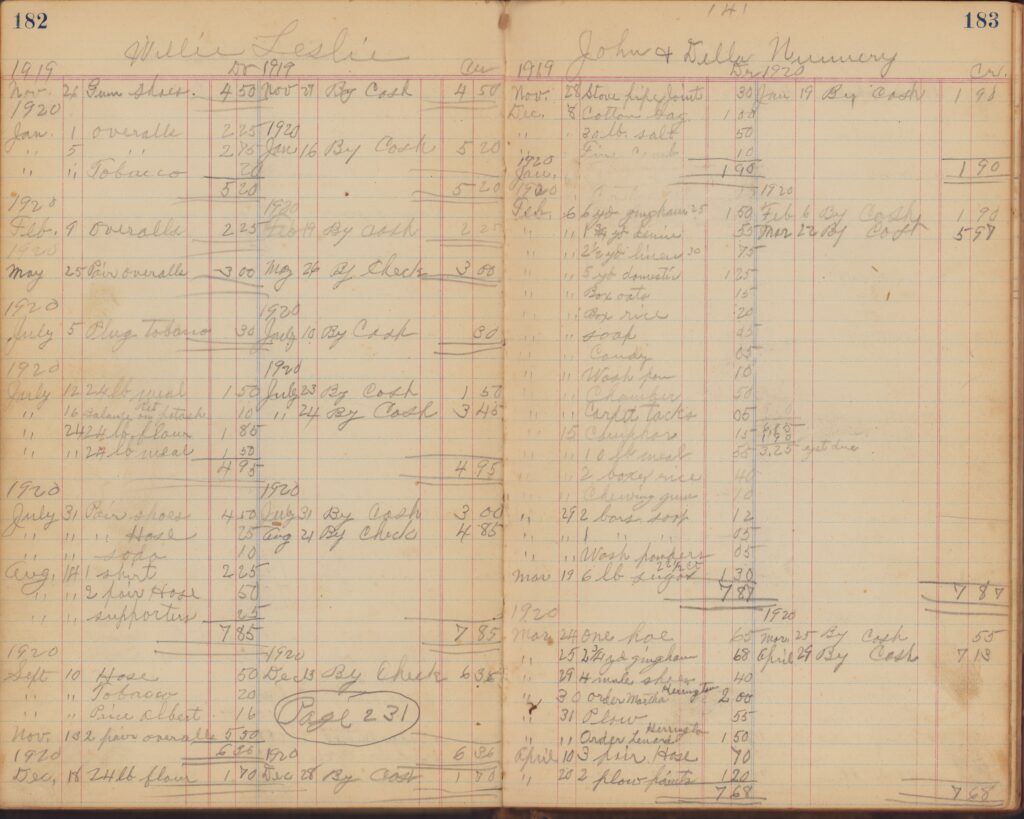 182
Willie Leslie
1919 Dr 1919 Cr
Nov. 26 Gum shoes. 4 50 Nov 27 By Cash 4 50
1920
Jan. 1 overalls 2 25 1920
" 5 " 2 75 Jan 16 By Cash 5 20
" " Tobacco 20
5 20 5 20
1920 1920
Feb. 9 overalls 2 25 Feb 19 By Cash 2 25
1920
May 25 Pair overalls 3 00 May 26 By Check 3 00
1920 1920
July 5 Plug tobacco 30 July 10 By Cash 30
1920 1920
July 12 24 lb meal 1 50 July 23 By Cash 1 50
" 16 balance on potash 10 " 24 By Cash 3 45
" 24 24 lb flour 1 85
" " 24 lb meal 1 50
4 95 4 95
1920 1920
July 31 Pair shoes 4 50 July 31 By Cash 3 00
" " " Hose 25 Aug 21 By Check 4 85
" " soda 10
Aug. 14 1 shirt 2 25
" " 2 pair Hose 50
" " supporters 25
7 85 7 85
1920 1920
Sept 10 Hose 50 Dec 13 By Check 6 36
" " Tobacco 20
" " Prince Albert 16 Page 231
Nov. 13 2 pair overalls 5 50
1920 6 36 1920 6 36
Dec, 18 24 lb flour 1 70 Dec 28 By Cash 1 70
141
183
John & Della Nunnery
1919 Dr 1920 Cr.
Nov. 28 Stove pipe Joints 30 Jan 19 By Cash 1 90
Dec. 8 Cotton bag 1 00
" 30 lb. salt 50
10
1920
Jan. 1 90 1 90
1920 1920
Feb. 6 6 yd gingham 25 1 50 Feb 6 By Cash 1 90
" " yd 55 Mar 22 By Cash 5 97
" " 2½ yd linen 30 75
" " 5 yd domestic 1 25
" " Box oats 15
" " Box rice 20
" " soap 05
" Candy 05
" " Wash pan 10
" " Chamber 50
" " Carpet tacks 05
" 15 Camphor 15
" " 10 lb meal 55 yet due
" " 2 boxes rice 40
" " Chewing gum 10
" 29 2 bars soap 12
" " 1 " " 05
" " Wash powders 05
Mar 19 6 lb sugar 1 30
7 87 7 87
1920 1920
Mar 24 one hoe 65 Mar. 25 By Cash 55
" 25 2¾ yd gingham 68 April 29 By Cash 7 13
" 29 4 mule shoes 40
" 30 order Martha Herrington 2 00
" 31 Plow 55
" " Order Lenard Herrington 1 50
April 10 3 pair Hose 70
" 20 2 plow points 1 20
7 68 7 68